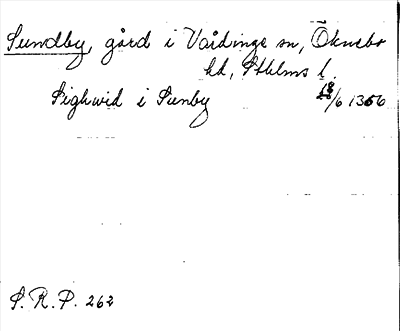 Sundby, gård i Vårdinge sn, Öknebo
hd, Sthlms l.
Sighwid i Sunby 18/6 1356
S. R. P. 262